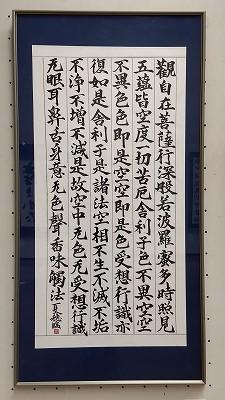 觀自在菩薩行深般若波羅蜜多時照見
五蘊皆空度一切苦厄舍利子色不異空空
不異色色即是空空即是色受想行識亦
復如是舍利子是諸法空相不生不滅不垢
不浄不增不減是故空中无色无受想行識
无眼耳鼻舌身意无色聲香味觸法